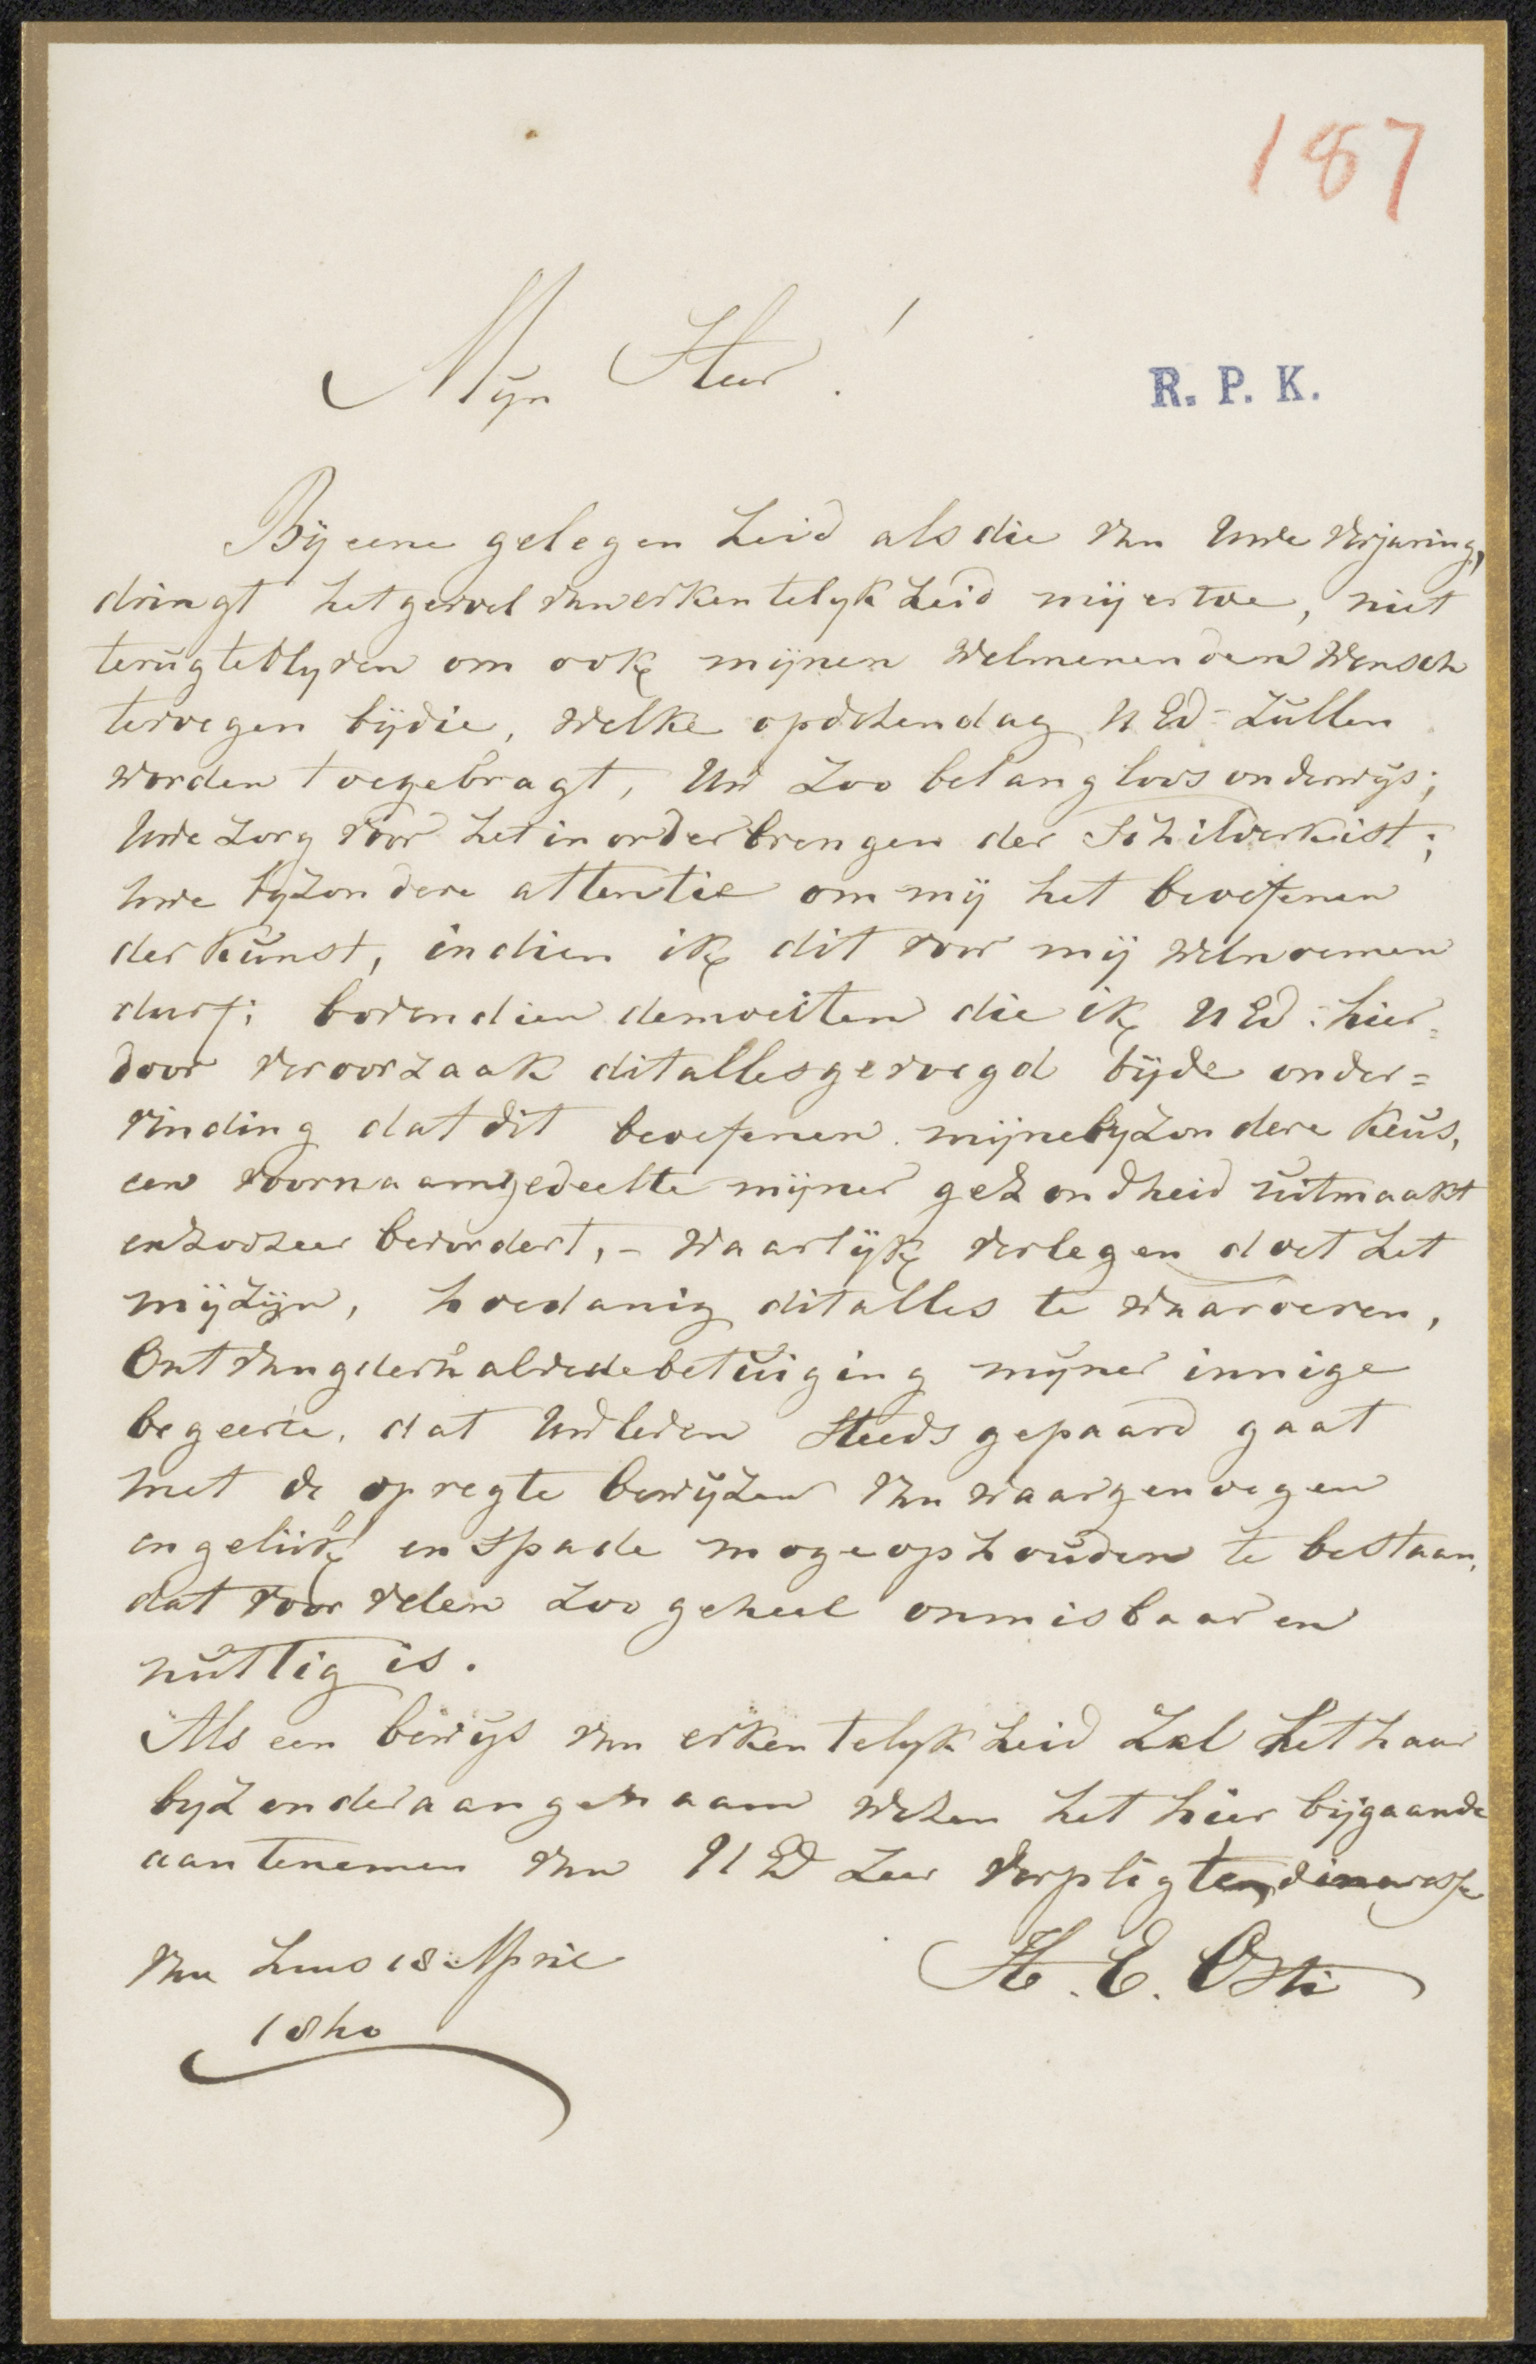 187
Mÿn Heer!
R. P. K.
Bÿ eene gelegenheid als die van Uwe Verjaring,
dringt het gevoel van erkentelykheid mÿ er toe, niet
terug te blyven om ook mÿnen welmenenden wensch
te voegen bÿ die, welke op dezen dag UEd = zullen
worden toegebragt, Uw zoo belangloos onderwÿs;
Uwe zorg voor het in order brengen der Schilderkist;
Uwe byzondere attentie om mÿ het beoefenen
der Kunst, indien ik dit voor mÿ wel noemen
durf; bovendien de moeiten die ik UEd: hier=
door veroorzaak dit alles gevoegd bÿ de onder=
vinding dat dit beoefenen mÿne byzondere Keus,
een voornaam gedeelte mÿner gezondheid uitmaakt
en zoo zeer bevordert, - waarlÿk verlegen doet het
mÿ zÿn, hoedanig dit alles te
Ontvang derhalve de betuiging mÿner innige
begeerte, dat Uw leven steeds gepaard gaat
met de opregte bewÿzen van waar genoegen
en geluk en spade moge ophouden te bestaan,
dat voor velen zoo geheel onmisbaar en
nuttig is.
Als een bewÿs van erkentelykheid zal het haar
byzonder aangenaam wezen het hier bÿgaande
aan te nemen van UEd zeer Verpligte,
Van Huis 18 April
H. E. Osti
1840